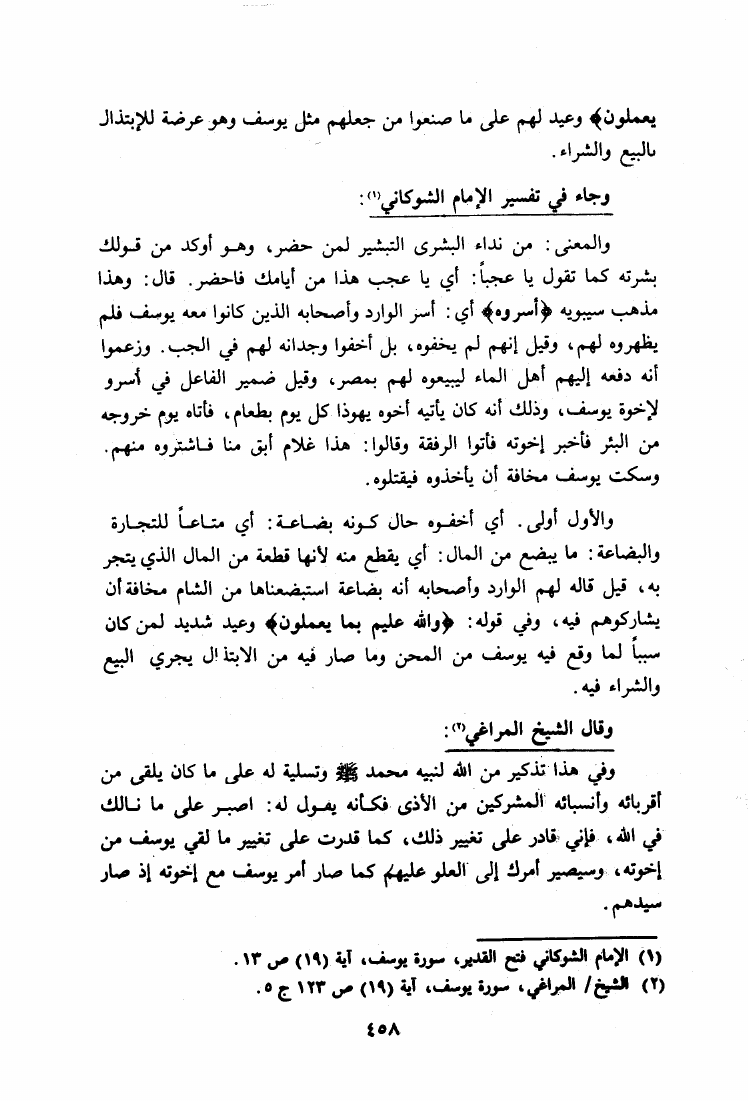 يعملون﴾ وعيد لهم على ما صنعوا من جعلهم مثل يوسف وهو عرضة للإبتذال
بالبيع والشراء.
وجاء في تفسير الإمام الشوكاني(١):
والمعنى: من نداء البشرى التبشير لمن حضر، وهو أوكد من قولك
بشرته كما تقول يا عجباً: أي يا عجب هذا من أيامك فاحضر. قال: وهذا
مذهب سيبويه ﴿أسروه﴾ أي: أسر الوارد وأصحابه الذين كانوا معه يوسف فلم
يظهروه لهم، وقيل إنهم لم يخفوه، بل أخفوا وجدانه لهم في الجب. وزعموا
أنه دفعه إليهم أهل الماء ليبيعوه لهم بمصر، وقيل ضمير الفاعل في أسرو
لإخوة يوسف، وذلك أنه كان يأتيه أخوه يهوذا كل يوم بطعام، فأتاه يوم خروجه
من البئر فأخبر إخوته فأتوا الرفقة وقالوا: هذا غلام أبق منا فاشتروه منهم.
وسكت يوسف مخافة أن يأخذوه فيقتلوه.
والأول أولى. أي أخفوه حال كونه بضاعة: أي متاعاً للتجارة
والبضاعة: ما يبضع من المال: أي يقطع منه لأنها قطعة من المال الذي يتجر
به، قيل قاله لهم الوارد وأصحابه أنه بضاعة استبضعناها من الشام مخافة أن
يشاركوهم فيه، وفي قوله: ﴿والله عليم بما يعملون﴾ وعيد شديد لمن كان
سبباً لما وقع فيه يوسف من المحن وما صار فيه من الابتذال يجري البيع
والشراء فيه.
وقال الشيخ المراغي(٢):
وفي هذا تذكير من الله لنبيه محمد ﷺ وتسلية له على ما كان يلقى من
أقربائه وأنسبائه المشركين من الأذى فكأنه يقول له: اصبر على ما نالك
في الله، فإني قادر على تغيير ذلك، كما قدرت على تغيير ما لقي يوسف من
إخوته، وسيصير أمرك إلى العلو عليهم كما صار أمر يوسف مع إخوته إذ صار
سيدهم.
(١) الإمام الشوكاني فتح القدير، سورة يوسف، آية (١٩) ص ١٣.
(٢) الشيخ/ المراغي، سورة يوسف، آية (١٩) ص ١٢٣ ج ٥.
٤٥٨